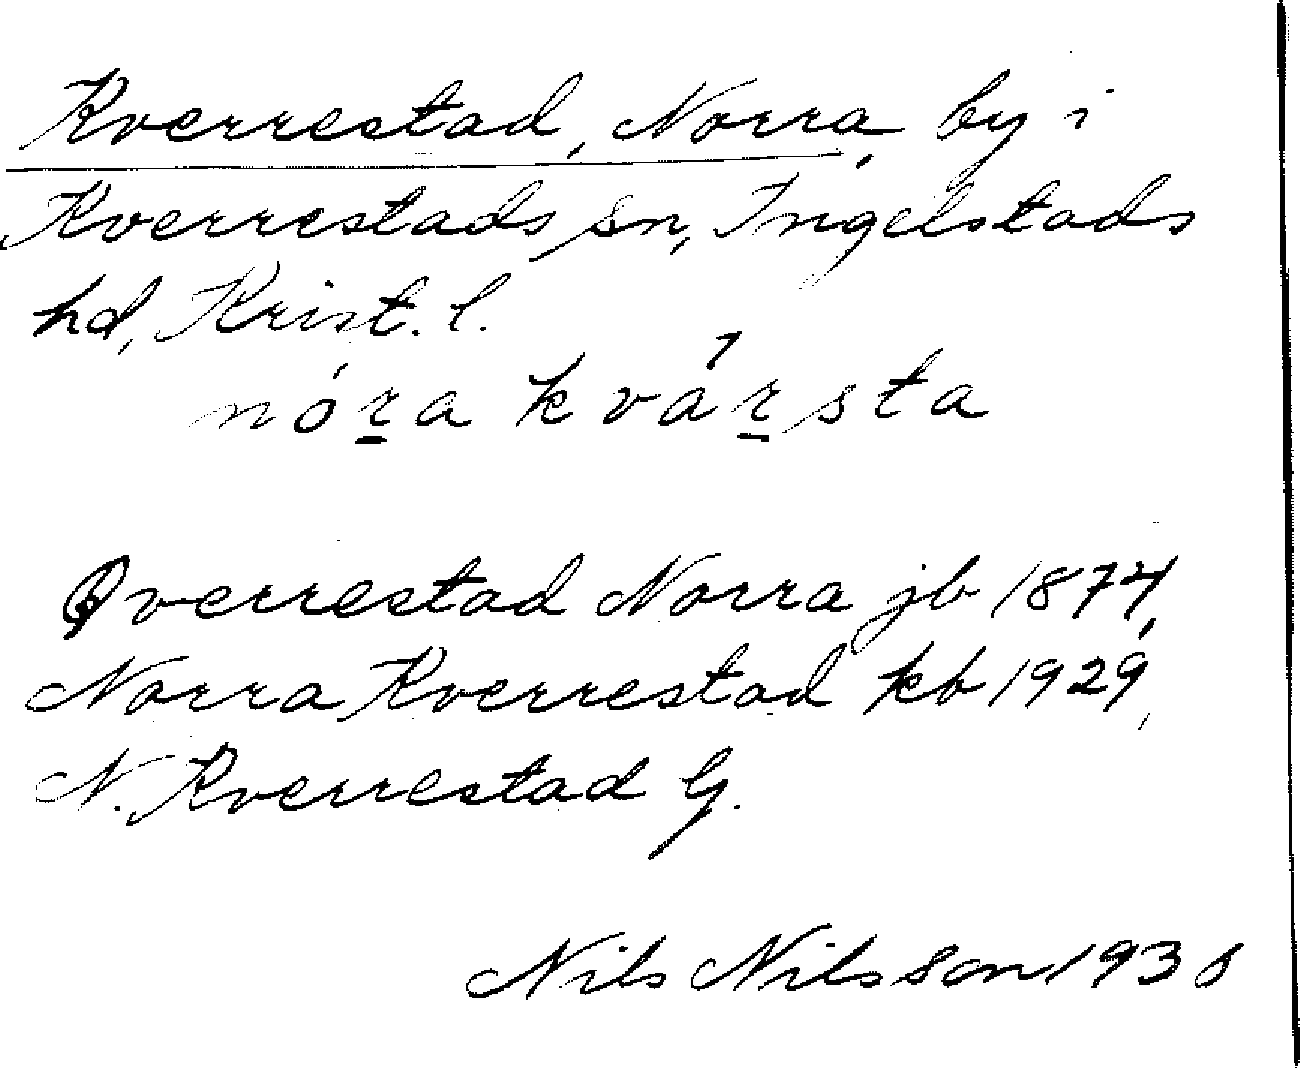 Kverrestad, Norra, by i
Kverrestads sn, Ingelstads
hd, Krist. l.
nóṟa kváṟsta
Qverrestad Norra jb 1874,
Norra Kverrestad kb 1929,
N. Kverrestad G.
Nils Nilsson